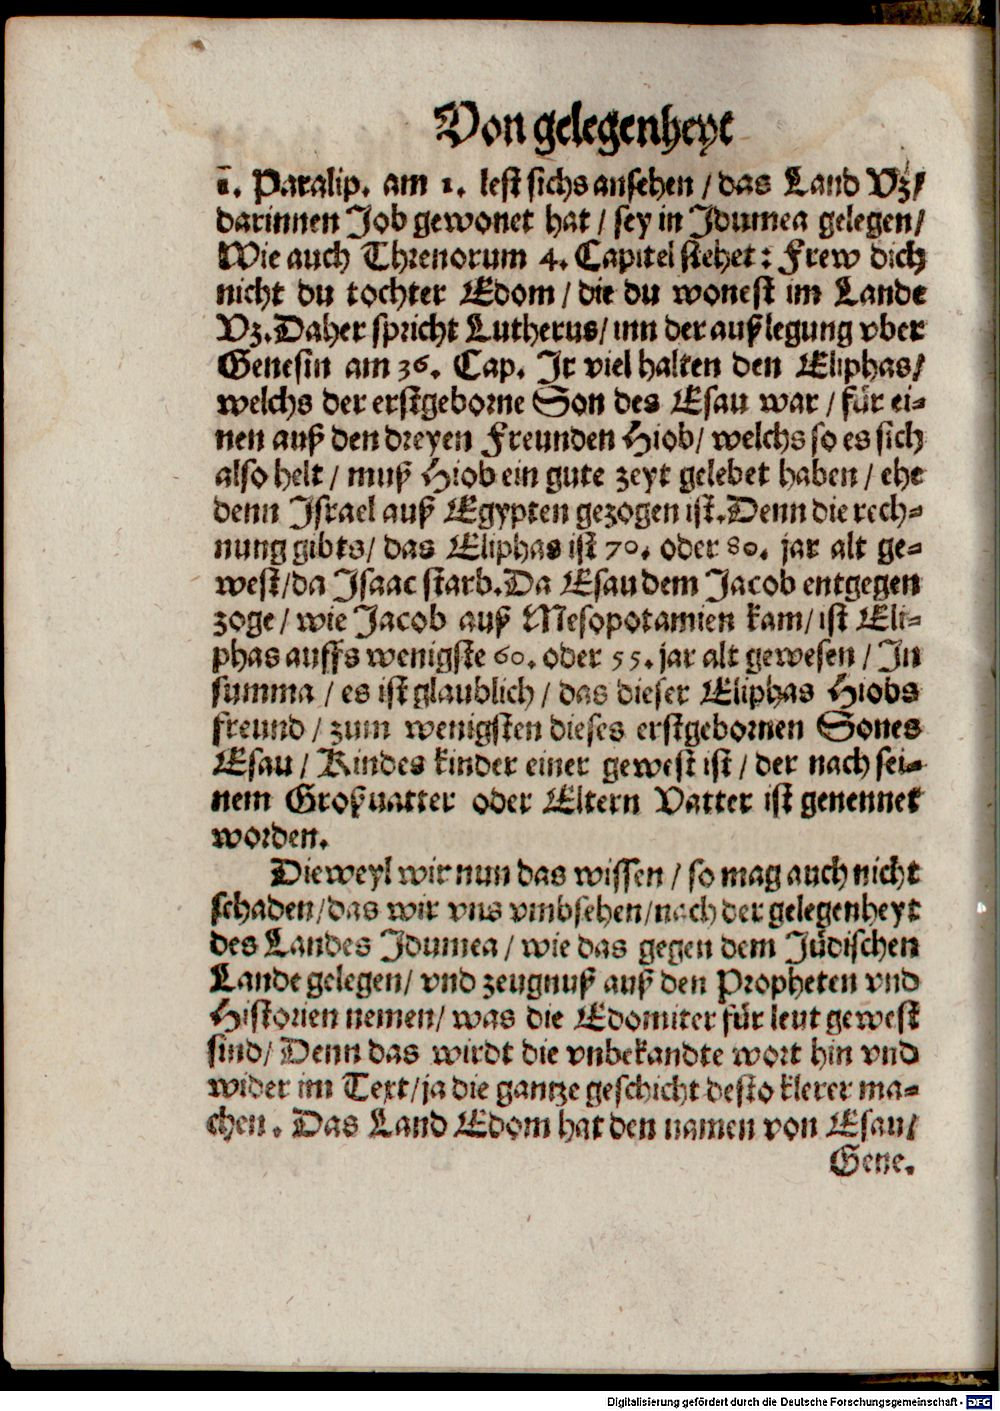 Von gelegenheyt
1. Paralip. am 1. lest sichs ansehen / das Land Vz/
darinnen Job gewonet hat / sey in Jdumea gelegen/
Wie auch Threnorum 4. Capitel stehet: Frew dich
nicht du tochter Edom / die du wonest im Lande
Vz. Daher spricht Lutherus/ inn der außlegung vber
Genesin am 36. Cap. Jr viel halten den Eliphas/
welchs der erstgeborne Son des Esau war / für ei-
nen auß den dreyen Freunden Hiob/ welchs so es sich
also helt / muß Hiob ein gute zeyt gelebet haben / ehe
denn Jsrael auß Egypten gezogen ist. Denn die rech-
nung gibts/ das Eliphas ist 70. oder 80. jar alt ge-
west/da Jsaac starb. Da Esau dem Jacob entgegen
zoge / wie Jacob auß Mesopotamien kam/ ist Eli-
phas auffs wenigste 60. oder 55. jar alt gewesen / Jn
summa / es ist glaublich / das dieser Eliphas Hiobs
freund / zum wenigsten dieses erstgebornen Sones
Esau / Kindes kinder einer gewest ist / der nach sei-
nem Großuatter oder Eltern Vatter ist genennet
worden.
Dieweyl wir nun das wissen / so mag auch nicht
schaden/das wir vns vmbsehen/nach der gelegenheyt
des Landes Jdumea / wie das gegen dem Jüdischen
Lande gelegen/ vnd zeugnuß auß den Propheten vnd
Historien nemen/ was die Edomiter für leut gewest
sind/ Denn das wirdt die vnbekandte wort hin vnd
wider im Text/ja die gantze geschicht desto klerer ma-
chen. Das Land Edom hat den namen von Esau/
Gene.
Digitalisierung gefördert durch die Deutsche Forschungsgemeinschaft - DFG